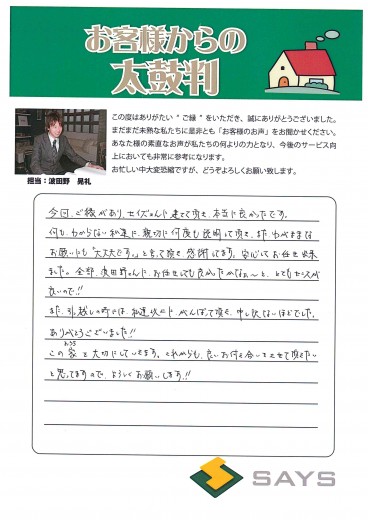 お客様からの
太鼓判
この度はありがたい“ご縁”をいただき、誠にありがとうございました。
まだまだ未熟な私たちに是非とも「お客様のお声」をお聞かせください。
あなた様の素直なお声が私たちの何よりの力となり、今後のサービス向
上においても非常に参考になります。
お忙しい中大変恐縮ですが、どうぞよろしくお願い致します。
担当：波田野 晃礼
今回、ご縁があり、セイズさんに建てて頂き、本当に良かったです。
何も、わからない私達に、親切に何度も説明して頂き、また、わがままな
お願いにも「大丈夫です。」と言って頂き感謝してます。安心してお任せ出来
ました。全部、波田野さんに、お任せしても良かったかなぁ〜と、とてもセンスが
良いので!!
また、引越しの時には、私達以上に、がんばって頂き、申し訳ないほどでした。
ありがとうございました!!
この家を大切にしていきます。これからも、良いお付き合いをさせて頂きたい
と思ってますので、よろしくお願いします!!
SAYS